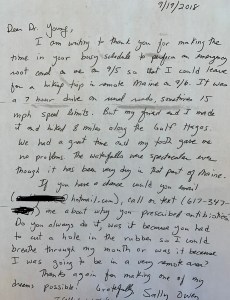 9/19/2018
Dear Dr. Young,
I am writing to thank you for making the
time in your busy schedule to perform an emergency
root canal on me on 9/5 so that I could leave
for a hiking trip in remote Maine on 9/6. It was
a 7 hour drive on rural roads, sometimes 15
mph speed limits. But my friend and I made
it and hiked 8 miles along the Gulf Hagas
We had a great time and my tooth gave me
no problems. The waterfalls were spectacular even
though it has been very dry in that part of Maine.
If you have a chance could you email
( hotmail.com), call or text (617-347-
) me about why you prescribed antibiotics.
Do you always do it, was it because you had
to cut a hole in the rubber so I could
breathe through my mouth or was it because
I was going to be in a very remote area?
Thanks again for making one of my
dreams possible! Gratefully, Sally